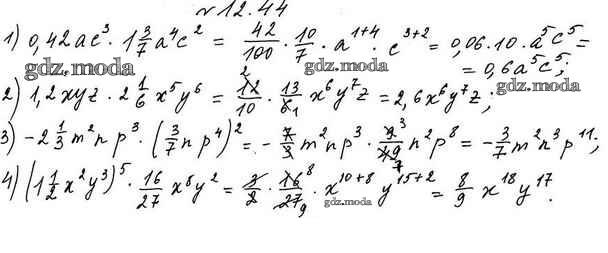 № 12.44
1) 0,42ac³ · 1 3/7 a⁴c² = 42/100 · 10/7 · a¹⁺⁴ · c³⁺² = 0,06 · 10 · a⁵c⁵ =
gdz.moda
= 0,6a⁵c⁵;
gdz.moda
2) 1,2xyz · 2 1/6 x⁵y⁶ = 12/10 · 13/6 x⁶y⁷z = 2,6x⁶y⁷z;
3) -2 1/3 m²np³ · (3/7 np⁴)² = -7/3 m²np³ · 9/49 n²p⁸ = -3/7 m²n³p¹¹;
4) (1 1/2 x²y³)⁵ · 16/27 x⁸y² = 3/2 · 16/27 · x¹⁰⁺⁸ y¹⁵⁺² = 8/9 x¹⁸y¹⁷.
gdz.moda
gdz.moda